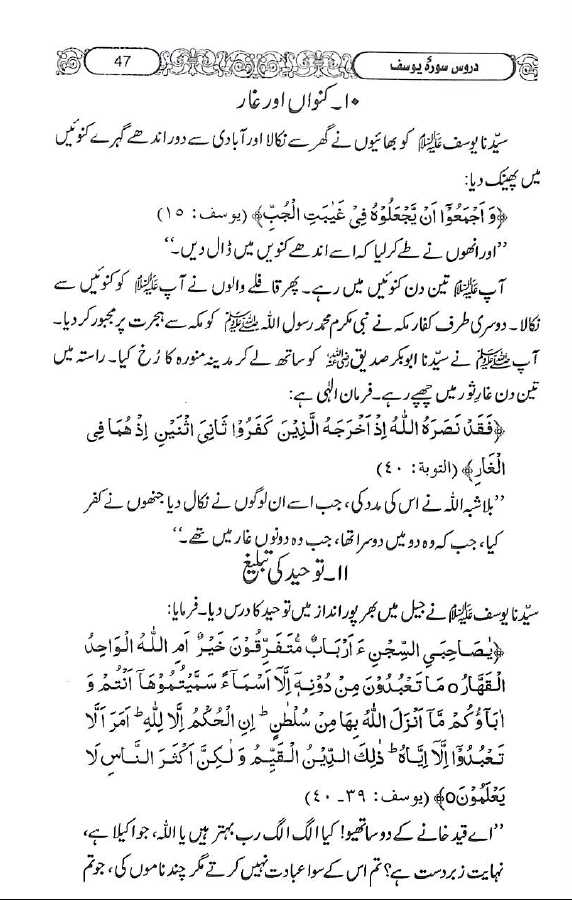 دروس سورۂ یوسف
47
۱۰۔ کنواں اور غار
سیّدنا یوسف علیہ السلام کو بھائیوں نے گھر سے نکالا اور آبادی سے دور اندھے گہرے کنوئیں
میں پھینک دیا:
﴿وَ اَجْمَعُوْٓا اَنْ یَّجْعَلُوْهُ فِیْ غَیٰبَتِ الْجُبِّ﴾ (یوسف: ۱۵)
’’اور انھوں نے طے کرلیا کہ اسے اندھے کنویں میں ڈال دیں۔‘‘
آپ علیہ السلام تین دن کنوئیں میں رہے۔ پھر قافلے والوں نے آپ علیہ السلام کو کنوئیں سے
نکالا۔ دوسری طرف کفار مکہ نے نبی مکرم محمد رسول اللہ ﷺ کو مکہ سے ہجرت پر مجبور کر دیا۔
آپ ﷺ نے سیّدنا ابوبکر صدیق رضی اللہ عنہ کو ساتھ لے کر مدینہ منورہ کا رُخ کیا۔ راستہ میں
تین دن غارِ ثور میں چھپے رہے۔ فرمان الٰہی ہے:
﴿فَقَدْ نَصَرَهُ اللّٰهُ اِذْ اَخْرَجَهُ الَّذِیْنَ كَفَرُوْا ثَانِیَ اثْنَیْنِ اِذْ هُمَا فِی
الْغَارِ﴾ (التوبة: ۴۰)
’’بلاشبہ اللہ نے اس کی مدد کی، جب اسے ان لوگوں نے نکال دیا جنھوں نے کفر
کیا، جب کہ وہ دو میں دوسرا تھا، جب وہ دونوں غار میں تھے۔‘‘
۱۱۔ توحید کی تبلیغ
سیّدنا یوسف علیہ السلام نے جیل میں بھرپور انداز میں توحید کا درس دیا۔ فرمایا:
﴿یٰصَاحِبَیِ السِّجْنِ ءَ اَرْبَابٌ مُّتَفَرِّقُوْنَ خَیْرٌ اَمِ اللّٰهُ الْوَاحِدُ
الْقَهَّارُ٥ مَا تَعْبُدُوْنَ مِنْ دُوْنِهٖٓ اِلَّآ اَسْمَآءً سَمَّیْتُمُوْهَآ اَنْتُمْ وَ
اٰبَآؤُكُمْ مَّآ اَنْزَلَ اللّٰهُ بِهَا مِنْ سُلْطٰنٍ ؕ اِنِ الْحُكْمُ اِلَّا لِلّٰهِ ؕ اَمَرَ اَلَّا
تَعْبُدُوْٓا اِلَّآ اِیَّاهُ ؕ ذٰلِكَ الدِّیْنُ الْقَیِّمُ وَ لٰكِنَّ اَكْثَرَ النَّاسِ لَا
یَعْلَمُوْنَ٥﴾ (یوسف: ۳۹۔ ۴۰)
’’اے قید خانے کے دو ساتھیو! کیا الگ الگ رب بہتر ہیں یا اللہ، جو اکیلا ہے،
نہایت زبردست ہے؟ تم اس کے سوا عبادت نہیں کرتے مگر چند ناموں کی، جو تم